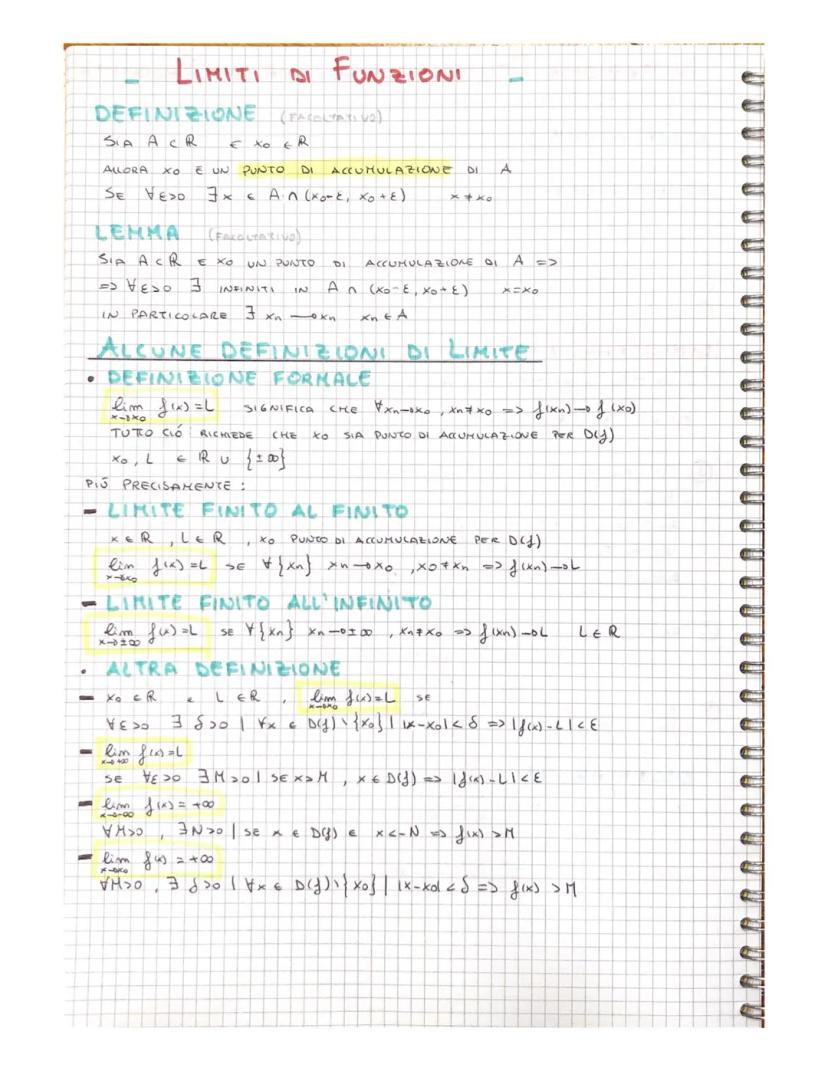 - LIMITI DI FUNZIONI -
DEFINIZIONE (FACOLTATIVO)
SIA A ⊂ R E x₀ ∈ R
ALLORA x₀ È UN PUNTO DI ACCUMULAZIONE DI A
SE ∀ε>0 ∃x ∈ A ∩ (x₀-ε, x₀+ε) x≠x₀
LEMMA (FACOLTATIVO)
SIA A ⊂ R E x₀ UN PUNTO DI ACCUMULAZIONE DI A =>
=> ∀ε>0 ∃ INFINITI IN A ∩ (x₀-ε, x₀+ε) x=x₀
IN PARTICOLARE ∃ xn → xn xn ∈ A
ALCUNE DEFINIZIONI DI LIMITE
• DEFINIZIONE FORMALE
lim x→x₀ f(x)=L SIGNIFICA CHE ∀xn→x₀, xn≠x₀ => f(xn)→f(x₀)
TUTTO CIÓ RICHIEDE CHE x₀ SIA PUNTO DI ACCUMULAZIONE PER D(f)
x₀, L ∈ R ∪ {±∞}
PIÚ PRECISAMENTE:
- LIMITE FINITO AL FINITO
x ∈ R, L ∈ R, x₀ PUNTO DI ACCUMULAZIONE PER D(f)
lim x→x₀ f(x)=L SE ∀{xn} xn→x₀, x₀≠xn => f(xn)→L
- LIMITE FINITO ALL'INFINITO
lim x→±∞ f(x)=L SE ∀{xn} xn→±∞, xn≠x₀ => f(xn)→L L ∈ R
• ALTRA DEFINIZIONE
- x₀ ∈ R e L ∈ R, lim x→x₀ f(x)=L SE
∀ε>0 ∃ δ>0 | ∀x ∈ D(f)\{x₀} | |x-x₀|<δ => |f(x)-L|<ε
- lim x→+∞ f(x)=L
SE ∀ε>0 ∃M>0 | SE x>M, x ∈ D(f) => |f(x)-L|<ε
- lim x→-∞ f(x)=+∞
∀M>0, ∃N>0 | SE x ∈ D(f) E x<-N => f(x)>M
- lim x→x₀ f(x)=+∞
∀M>0, ∃ δ>0 | ∀x ∈ D(f)\{x₀} | |x-x₀|<δ => f(x)>M